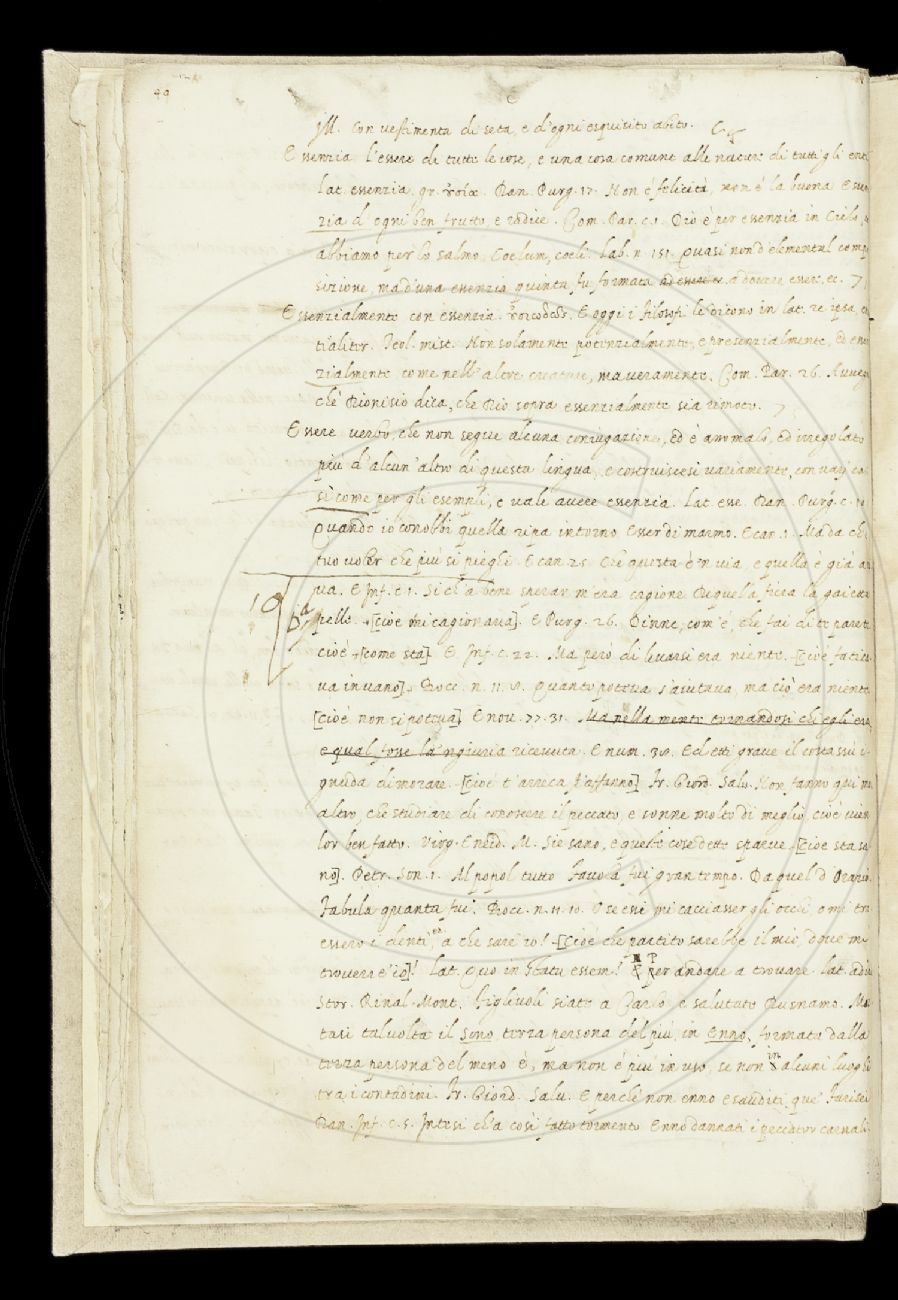 40
M. con vestimenta di seta, e d'ogni esquisito abito.
Essenzia l'essere di tutte le cose, e una cosa comune alle nature di tutti gli enti
Lat. essenzia, gr. Dan. Purg. 17. Non è felicità, non è la buona Essen
zia d'ogni ben frutto, e radice. Com. Par. c. 1. Dio è per essenzia in Cielo,
abbiamo per lo salmo, Coelum, coeli. Lab. n. 151. Quasi non d'elemental compo
sizione, ma d'una essenzia quinta fu formata ad essere a dovere esser, ec.
Essenzialmente con essenzia. E oggi i filosofi le dicono in lat. re ipsa, es
tialiter. Teol. mist. Non solamente potenzialmente, e presenzialmente, ed essen
zialmente come nell'altre creature, ma veramente. Com. Par. 26. Avvegna
chè Dionisio dica, che Dio sopra essenzialmente sia rimoto.
Essere verbo, che non segue alcuna coniugazione, ed è anomalo, ed irregolato
più d'alcun'altro di questa lingua, e costruiscesi variamente, con varj ca
sì come per gli esempli, e vale avere essenzia. Lat. esse. Dan. Purg. c. 10
Quando io conobbi quella ripa intorno Esser di marmo. E can. 1. Ma da ch'è
tuo voler che più si pieghi. E can. 25. Che questa è 'n via, e quella è già a ri
va. E Inf. c. 1. Sì ch'a bene sperar m'era cagione Di quella fiera la gaietta
pelle. [cioè mi cagionava]. E Purg. 26. Dinne, com'è, che fai di te parete
cioè [come sta]. E Inf. c. 22. Ma però di levarsi era niente. [cioè fatica
va invano]. Bocc. n. 11. 8. Quanto poteva s'aiutava, ma ciò era niente
[cioè non si poteva]. E nov. 77. 31. Ma nella mente tornandosi chi egli era,
e qual fosse la 'ngiuria ricevuta. E num. 38. Ed etti grave il costassù i
gnuda dimorare. [cioè t'arreca l'affanno] Fr. Giord. Salv. Non fanno qui mai
altro, che studiare di conoscere il peccato, e sonne molto di meglio, cioè vien
lor ben fatto. Virg. Eneid. M. Sie sano, e queste cose dette sparve. [cioè sta sa
no]. Petr. Son. 1. Al popol tutto Favola fui gran tempo. Da quel d'Orazio.
Fabula quanta fui. Bocc. n. 11. 10. O se essi mi cacciasser gli occhi, o mi tra
essero i denti, a che sare' io! [cioè che partito sarebbe il mio, dove mi
troverre' io]! Lat. Quo in statu essem! Per andare a trovare. lat. adi
Stor. Rinal. Mont. Figliuoli siate a Carlo e salutate Dusnamo. Mu
tasi talvolta il sono, terza persona del più, in Enno, formata dalla
terza persona del meno è, ma non è più in uso, se non in alcuni luoghi
tra i contadini. Fr. Giord. Salv. E perchè non enno esauditi que' Farisei
Dan. Inf. c. 5. Intesi ch'a così fatto tormento Enno dannati i peccator carnali